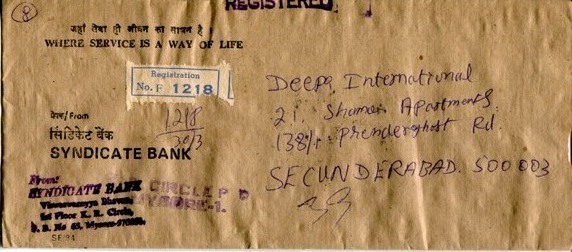 8
REGISTERED
जहाँ सेवा ही जीवन का साधन है
WHERE SERVICE IS A WAY OF LIFE
Registration
No. F 1218
प्रेषक/From
1218
30/3
सिंडिकेट बैंक
SYNDICATE BANK
From:
SYNDICATE BANK
Visweswarayya Bhavan
1st Floor K. R. Circle,
P. B. No 65, Mysore-570001.
CIRCLE P O
MYSORE-1.
Deepa International
21. Apartments.
138/1 Prenderghast Rd.
SECUNDERABAD. 500 003